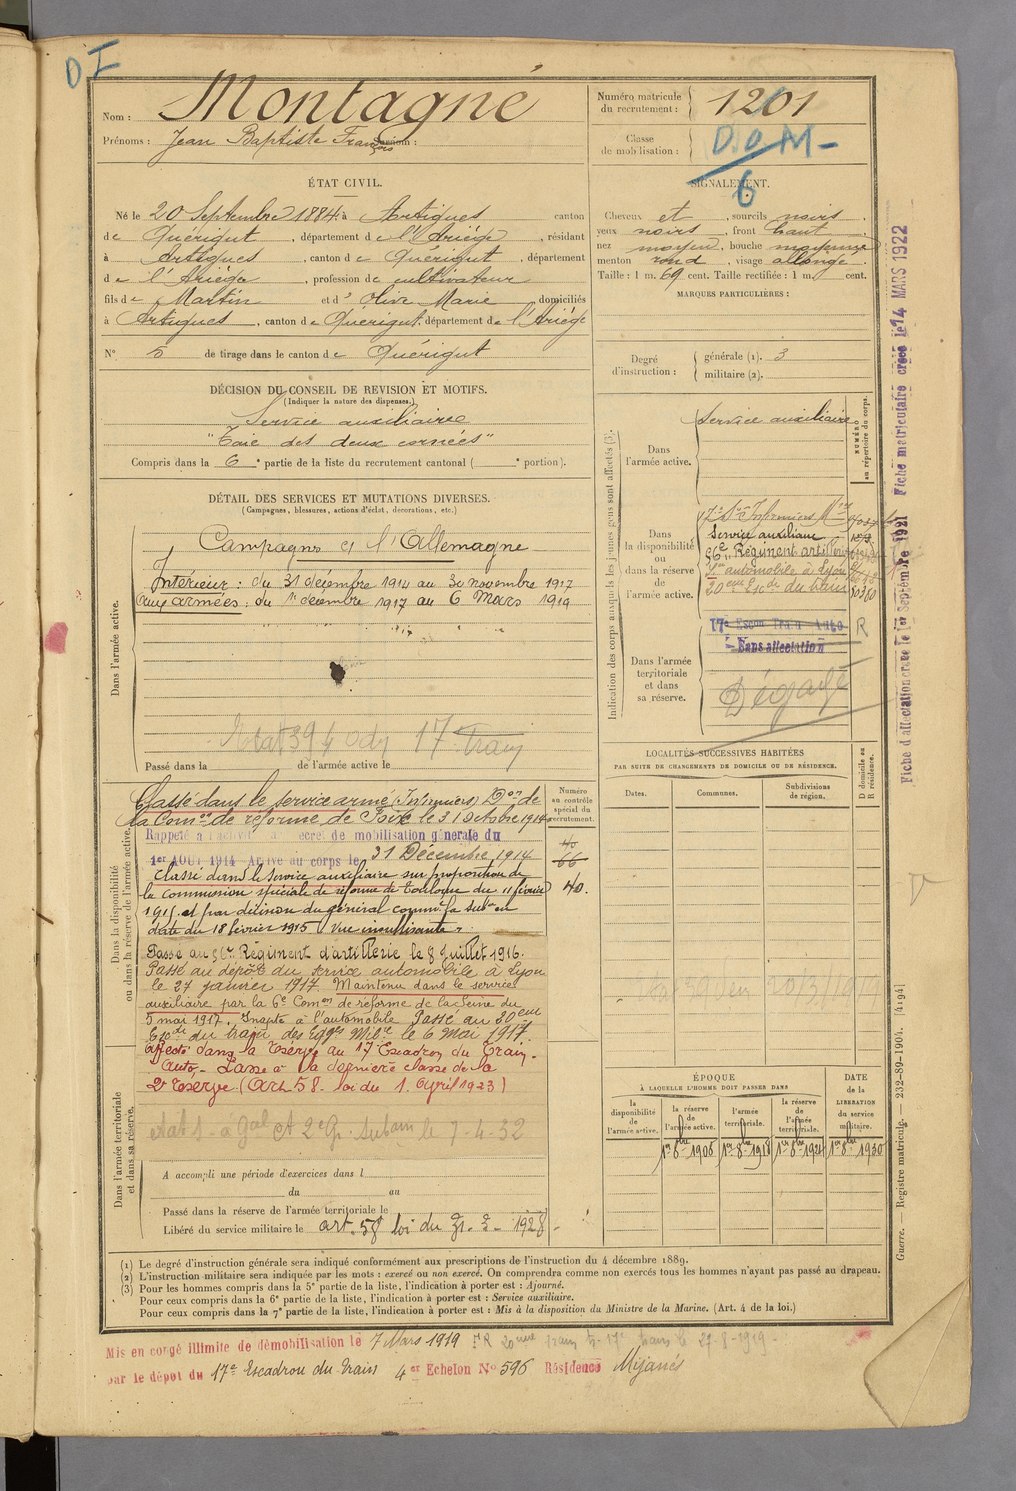 D I
Nom : Montagné
Prénoms : Jean Baptiste François Surnom :
Numéro matricule du recrutement : 1201
Classe de mobilisation : D.O.M-
6
ÉTAT CIVIL.
Né le 20 Septembre 1884 à Artigues canton
de Quérigut, département de l'Ariège, résidant
à Artigues, canton de Quérigut, département
de l'Ariège, profession de cultivateur
fils de Martin et d' Olive Marie domiciliés
à Artigues, canton de Quérigut, département de l'Ariège
N° 5 de tirage dans le canton de Quérigut
SIGNALEMENT.
Cheveux et, sourcils noirs,
yeux noirs, front haut
nez moyen, bouche moyenne
menton rond, visage allongé.
Taille : 1 m. 69 cent. Taille rectifiée : 1 m. cent.
MARQUES PARTICULIÈRES :
Degré d'instruction : générale (1). 3
militaire (2).
DÉCISION DU CONSEIL DE REVISION ET MOTIFS.
(Indiquer la nature des dispenses.)
Service auxiliaire
"Taie des deux cornées"
Compris dans la 6e partie de la liste du recrutement cantonal ( e portion).
DÉTAIL DES SERVICES ET MUTATIONS DIVERSES.
(Campagnes, blessures, actions d'éclat, décorations, etc.)
Dans l'armée active.
Campagne c/ l'Allemagne
Intérieur : du 31 décembre 1914 au 30 novembre 1917
aux armées : du 1er décembre 1917 au 6 Mars 1919
17 Train
Passé dans la de l'armée active le
Indication des corps auxquels les jeunes gens sont affectés (3).
NUMÉRO au répertoire du corps.
Dans l'armée active.
Service auxiliaire
Dans la disponibilité ou dans la réserve de l'armée active.
17e Son Infirmiers Mres
Service auxiliaire
56e Régiment artillerie
automobile à Lyon
20eme Escon du train
Dans l'armée territoriale et dans sa réserve.
17e Escon Train Auto R
Sans affectation
Dégagé
LOCALITÉS SUCCESSIVES HABITÉES
PAR SUITE DE CHANGEMENTS DE DOMICILE OU DE RÉSIDENCE.
Dates.
Communes.
Subdivisions de région.
D domicile ou R résidence.
Dans la disponibilité ou dans la réserve de l'armée active.
Numéro au contrôle spécial du recrutement.
Classé dans le service armé (Infirmiers) Don de
la Comon de réforme de Foix le 31 Octobre 1914
Rappelé à l'activité décret de mobilisation générale du
1er AOUT 1914 Arrivé au corps le 31 Décembre 1914
Classé dans le Service auxiliaire sur proposition de
la commission spéciale de réforme de Toulouse du 11 février
1915 et par décision du général commt la Subon en
date du 18 février 1915 "Vue insuffisante".
40
66
40.
Passé au 56me Régiment d'artillerie le 8 Juillet 1916.
Passé au dépôt du service automobile à Lyon
le 27 janvier 1917. Maintenu dans le service
auxiliaire par la 6e Comon de réforme de la Seine du
5 mai 1917. Inapte à l'automobile Passé au 20eme
Escon du train des Eqges Mires le 6 Mai 1917.
Affecté dans la réserve au 17e Escadron du Train
Auto. - Passé à la dernière classe de la
2e réserve (Art. 58 - loi du 1. Avril 1923)
Dans l'armée territoriale et dans sa réserve.
le 7-4-32
A accompli une période d'exercices dans l
du au
Passé dans la réserve de l'armée territoriale le
Libéré du service militaire le art. 58 loi du 1928.
ÉPOQUE
À LAQUELLE L'HOMME DOIT PASSER DANS
la disponibilité de l'armée active.
la réserve de l'armée active.
l'armée territoriale.
la réserve de l'armée territoriale.
DATE de la LIBÉRATION du service militaire.
1er 8bre 1908
1er 8bre 1918
1er 8bre 1924
1er 8bre 1930
(1) Le degré d'instruction générale sera indiqué conformément aux prescriptions de l'instruction du 4 décembre 1889.
(2) L'instruction militaire sera indiquée par les mots : exercé ou non exercé. On comprendra comme non exercés tous les hommes n'ayant pas passé au drapeau.
(3) Pour les hommes compris dans la 5e partie de la liste, l'indication à porter est : Ajourné.
Pour ceux compris dans la 6e partie de la liste, l'indication à porter est : Service auxiliaire.
Pour ceux compris dans la 7e partie de la liste, l'indication à porter est : Mis à la disposition du Ministre de la Marine. (Art. 4 de la loi.)
Mis en congé illimité de démobilisation le 7 Mars 1919
par le dépôt du 17e Escadron du Train 4er Echelon N° 596 Résidence Mijanès
Fiche d'affectation créée le 1er Septembre 1921 Fiche matriculaire créée le 14 MARS 1922
Guerre. — Registre matricule. — 232-89-1904. [4194]